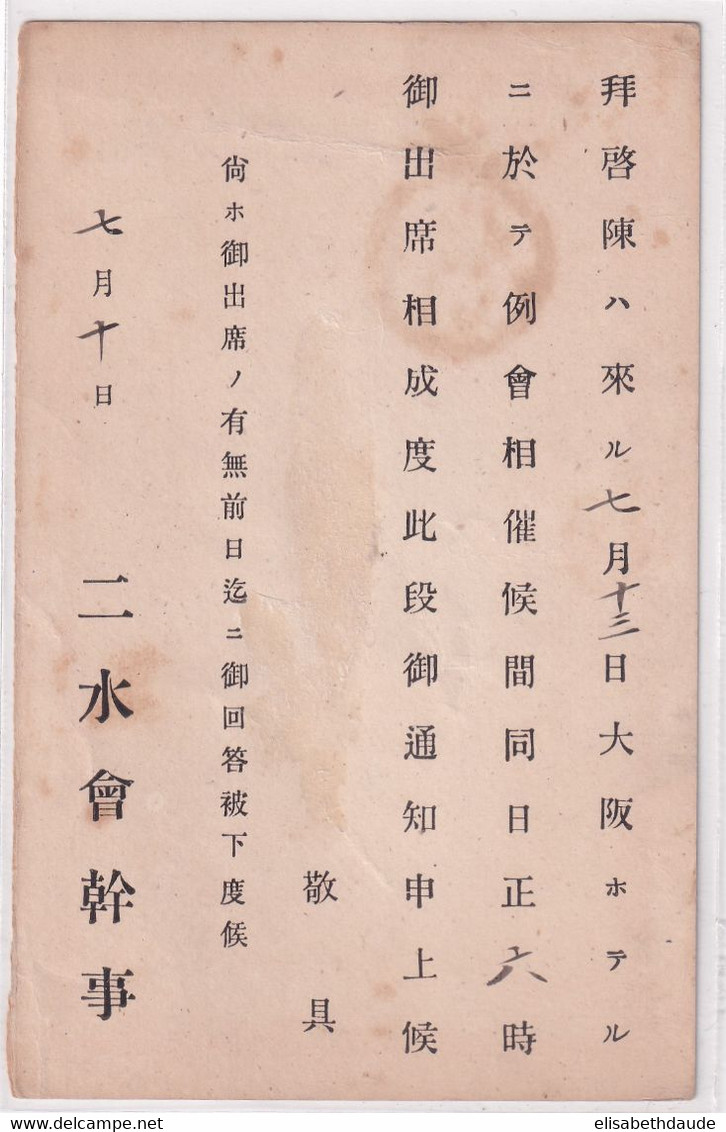 拜啓陳ハ來ル七月十三日大阪ホテル
ニ於テ例會相催候間同日正六時
御出席相成度此段御通知申上候
敬具
尙ホ御出席ノ有無前日迄ニ御回答被下度候
七月十日
二水會幹事
delcampe.net
elisabethdaude